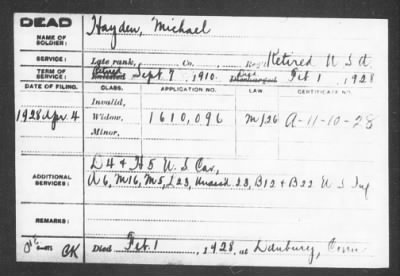 DEAD
NAME OF SOLDIER: Hayden, Michael
SERVICE: Late rank, Co. Reg't Retired U S A
TERM OF SERVICE: Retired Enlisted Sept. 7, 1910. Died Discharged Feb 1, 1928
DATE OF FILING. CLASS. APPLICATION NO. LAW. CERTIFICATE NO.
Invalid,
1928 Apr. 4 Widow, 1610,096 A-11-10-28
Minor,
ADDITIONAL SERVICES: D 4 & H 5 U. S. Cav,
A 6, M16, M5, I 23, Unassd. 23, B12 & B22 U S Inf
REMARKS:
Died Feb. 1, 1928, at Danbury, Conn